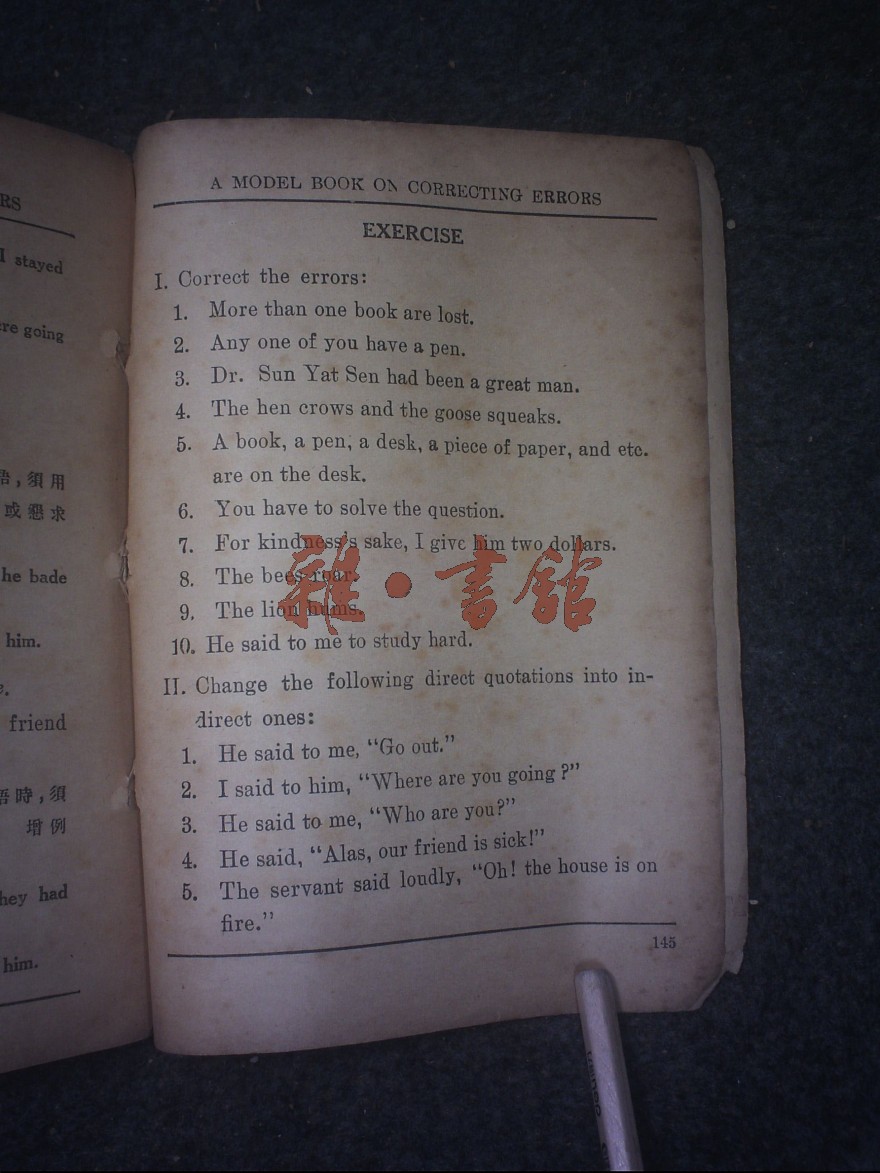 RS
I stayed
re going
語,須用
或懇求
he bade
him.
friend
語時,須
增例
hey had
him.
A MODEL BOOK ON CORRECTING ERRORS
EXERCISE
I. Correct the errors:
1. More than one book are lost.
2. Any one of you have a pen.
3. Dr. Sun Yat Sen had been a great man.
4. The hen crows and the goose squeaks.
5. A book, a pen, a desk, a piece of paper, and etc.
are on the desk.
6. You have to solve the question.
7. For kindness's sake, I give him two dollars.
8. The bees roar.
9. The lion hums.
10. He said to me to study hard.
II. Change the following direct quotations into in-
direct ones:
1. He said to me, “Go out.”
2. I said to him, “Where are you going ?”
3. He said to me, “Who are you?”
4. He said, “Alas, our friend is sick!”
5. The servant said loudly, “Oh! the house is on
fire.”
145
雜·書館